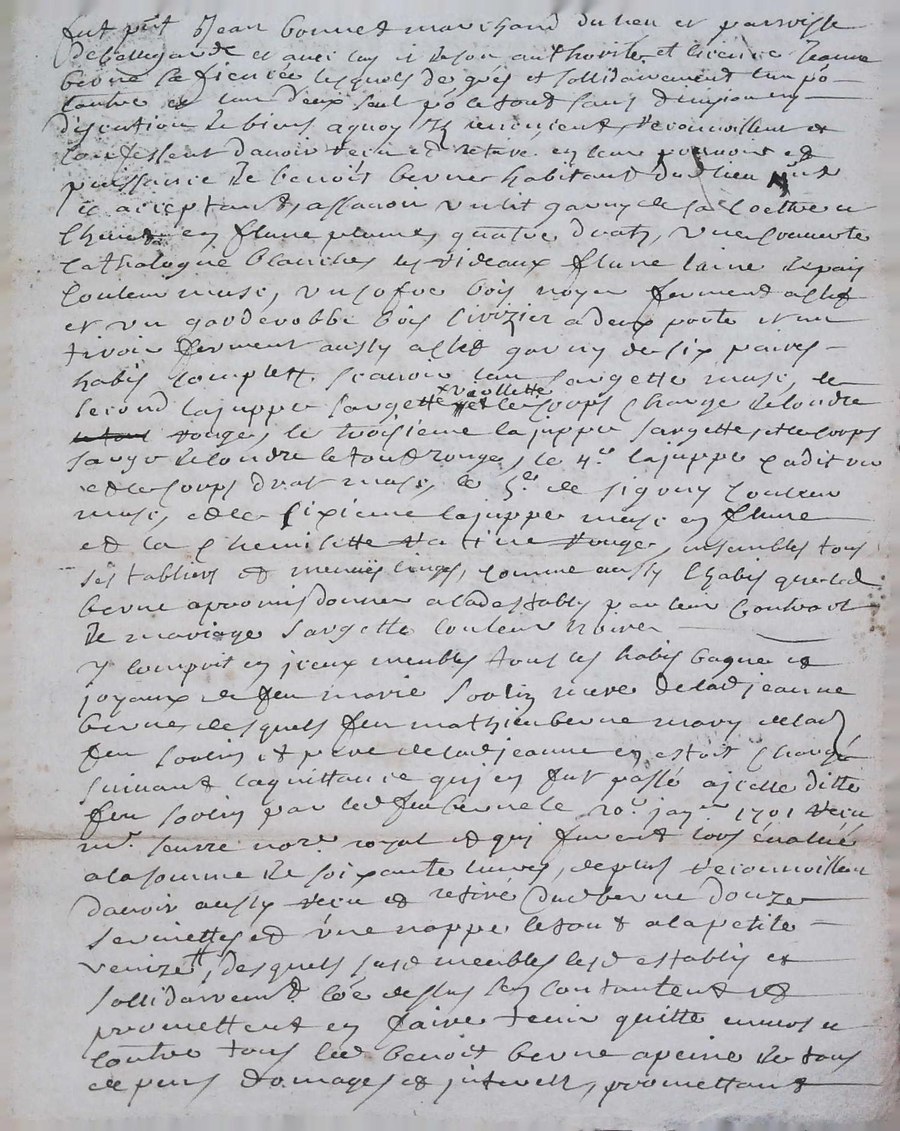 fut pnt Sr Jean bonnet marchand du lieu et parroisse
de bellegarde et avec luy et de son authorité et licence Jeanne
berne sa fiencée lesquels de grés et sollidairement lun po
lautre et lun deux seul po le tout sans division ny
discution de biens a quoy ilz renoncient, reconnoillent et
confessent davoir receu et retiré en leur pouvoir et
puissance de benoist berne habitant dud lieu
icy acceptant, assavoir un lit garny de sa coettre et
chuet en flune plume, quattre drats, une couverte
cathalogue blanche, les rideaux flune laine du pais
couleur muse, un cofre bois noyer ferment a clef
et un garderobbe bois cerizier a deux porte et un
tiroir ferment aussy a clef garny de six paires
habis complets, scavoir lun sargette muse, le
second la juppe sargette violette et le corps sarge de londre
rouge, le troisieme la juppe sargette, et le corps
sarge de londre le tout rouge, le 4e la juppe cadis
et le corps drat muse, le 5e de sigovy couleur
muse, et le sixieme la juppe muse en flune
et la chemisette ratine rouge, ensembles tous
ses tabliers et menues linges, comme aussy l'habis que led
berne a promis donner a lad establis par leur contract
de mariage sargette couleur
Y comprit en iceux meubles tous les habis bague et
joyaux de feu marie soulin mere de lad jeanne
berne desquels feu mathieu berne mary de lad
feu soulin et pere de lad jeanne en estoit chargé
suivant la quittance qui en fut passé a icelle ditte
feu soulin par led feu berne le 20e janer 1701 receu
me seurre nore royal et qui furent lors évalué
a la somme de soixante livres, de plus reconnoillent
davoir aussy receu et retiré dud berne douze
serviettes et une nappe le tout a la petite
venize, desquels susd meubles lesd establis et
sollidairement co'e dessus s'en contentent et
promettent en faire tenir quitte envers et
contre tous led benoit berne a peine de tous
depens domages et interests, promettant